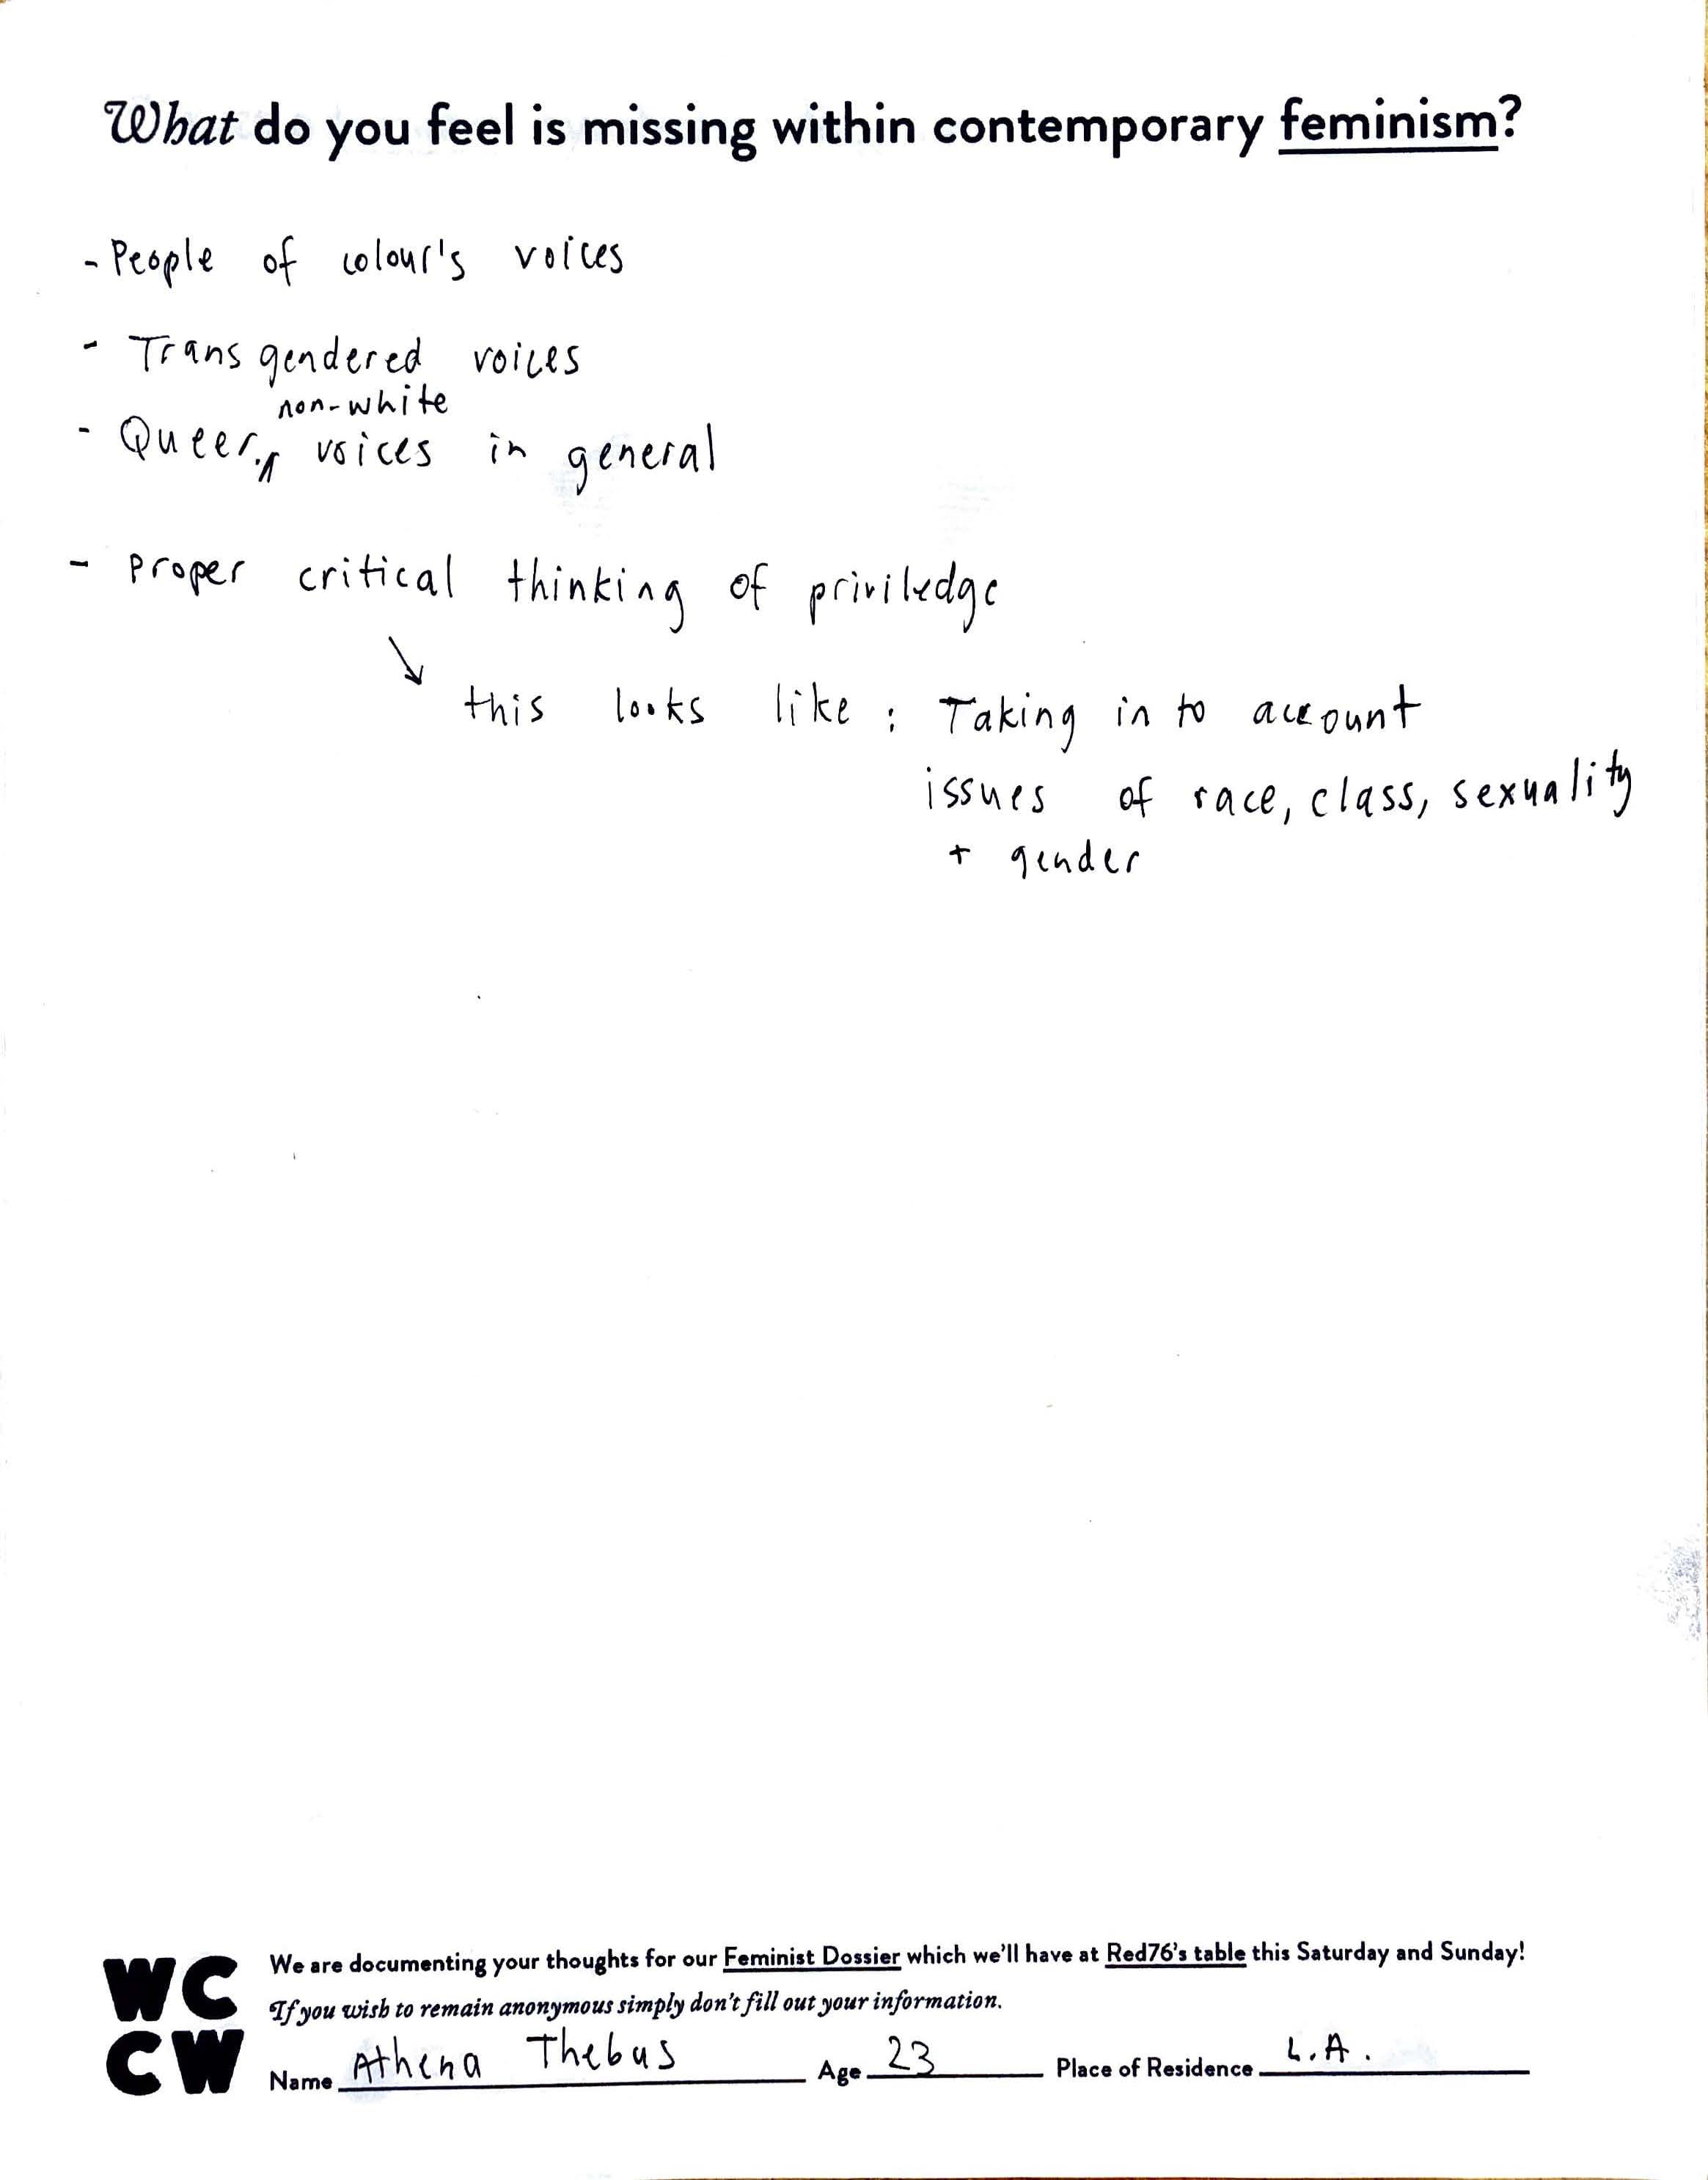 What do you feel is missing within contemporary feminism?
- People of colour's voices
- Trans gendered voices
non-white
- Queer, voices in general
- Proper critical thinking of priviledge
↘
this looks like : Taking in to account
issues of race, class, sexuality
+ gender
WC
CW
We are documenting your thoughts for our Feminist Dossier which we'll have at Red76's table this Saturday and Sunday!
If you wish to remain anonymous simply don't fill out your information.
Name Athena Thebus Age 23 Place of Residence L.A.